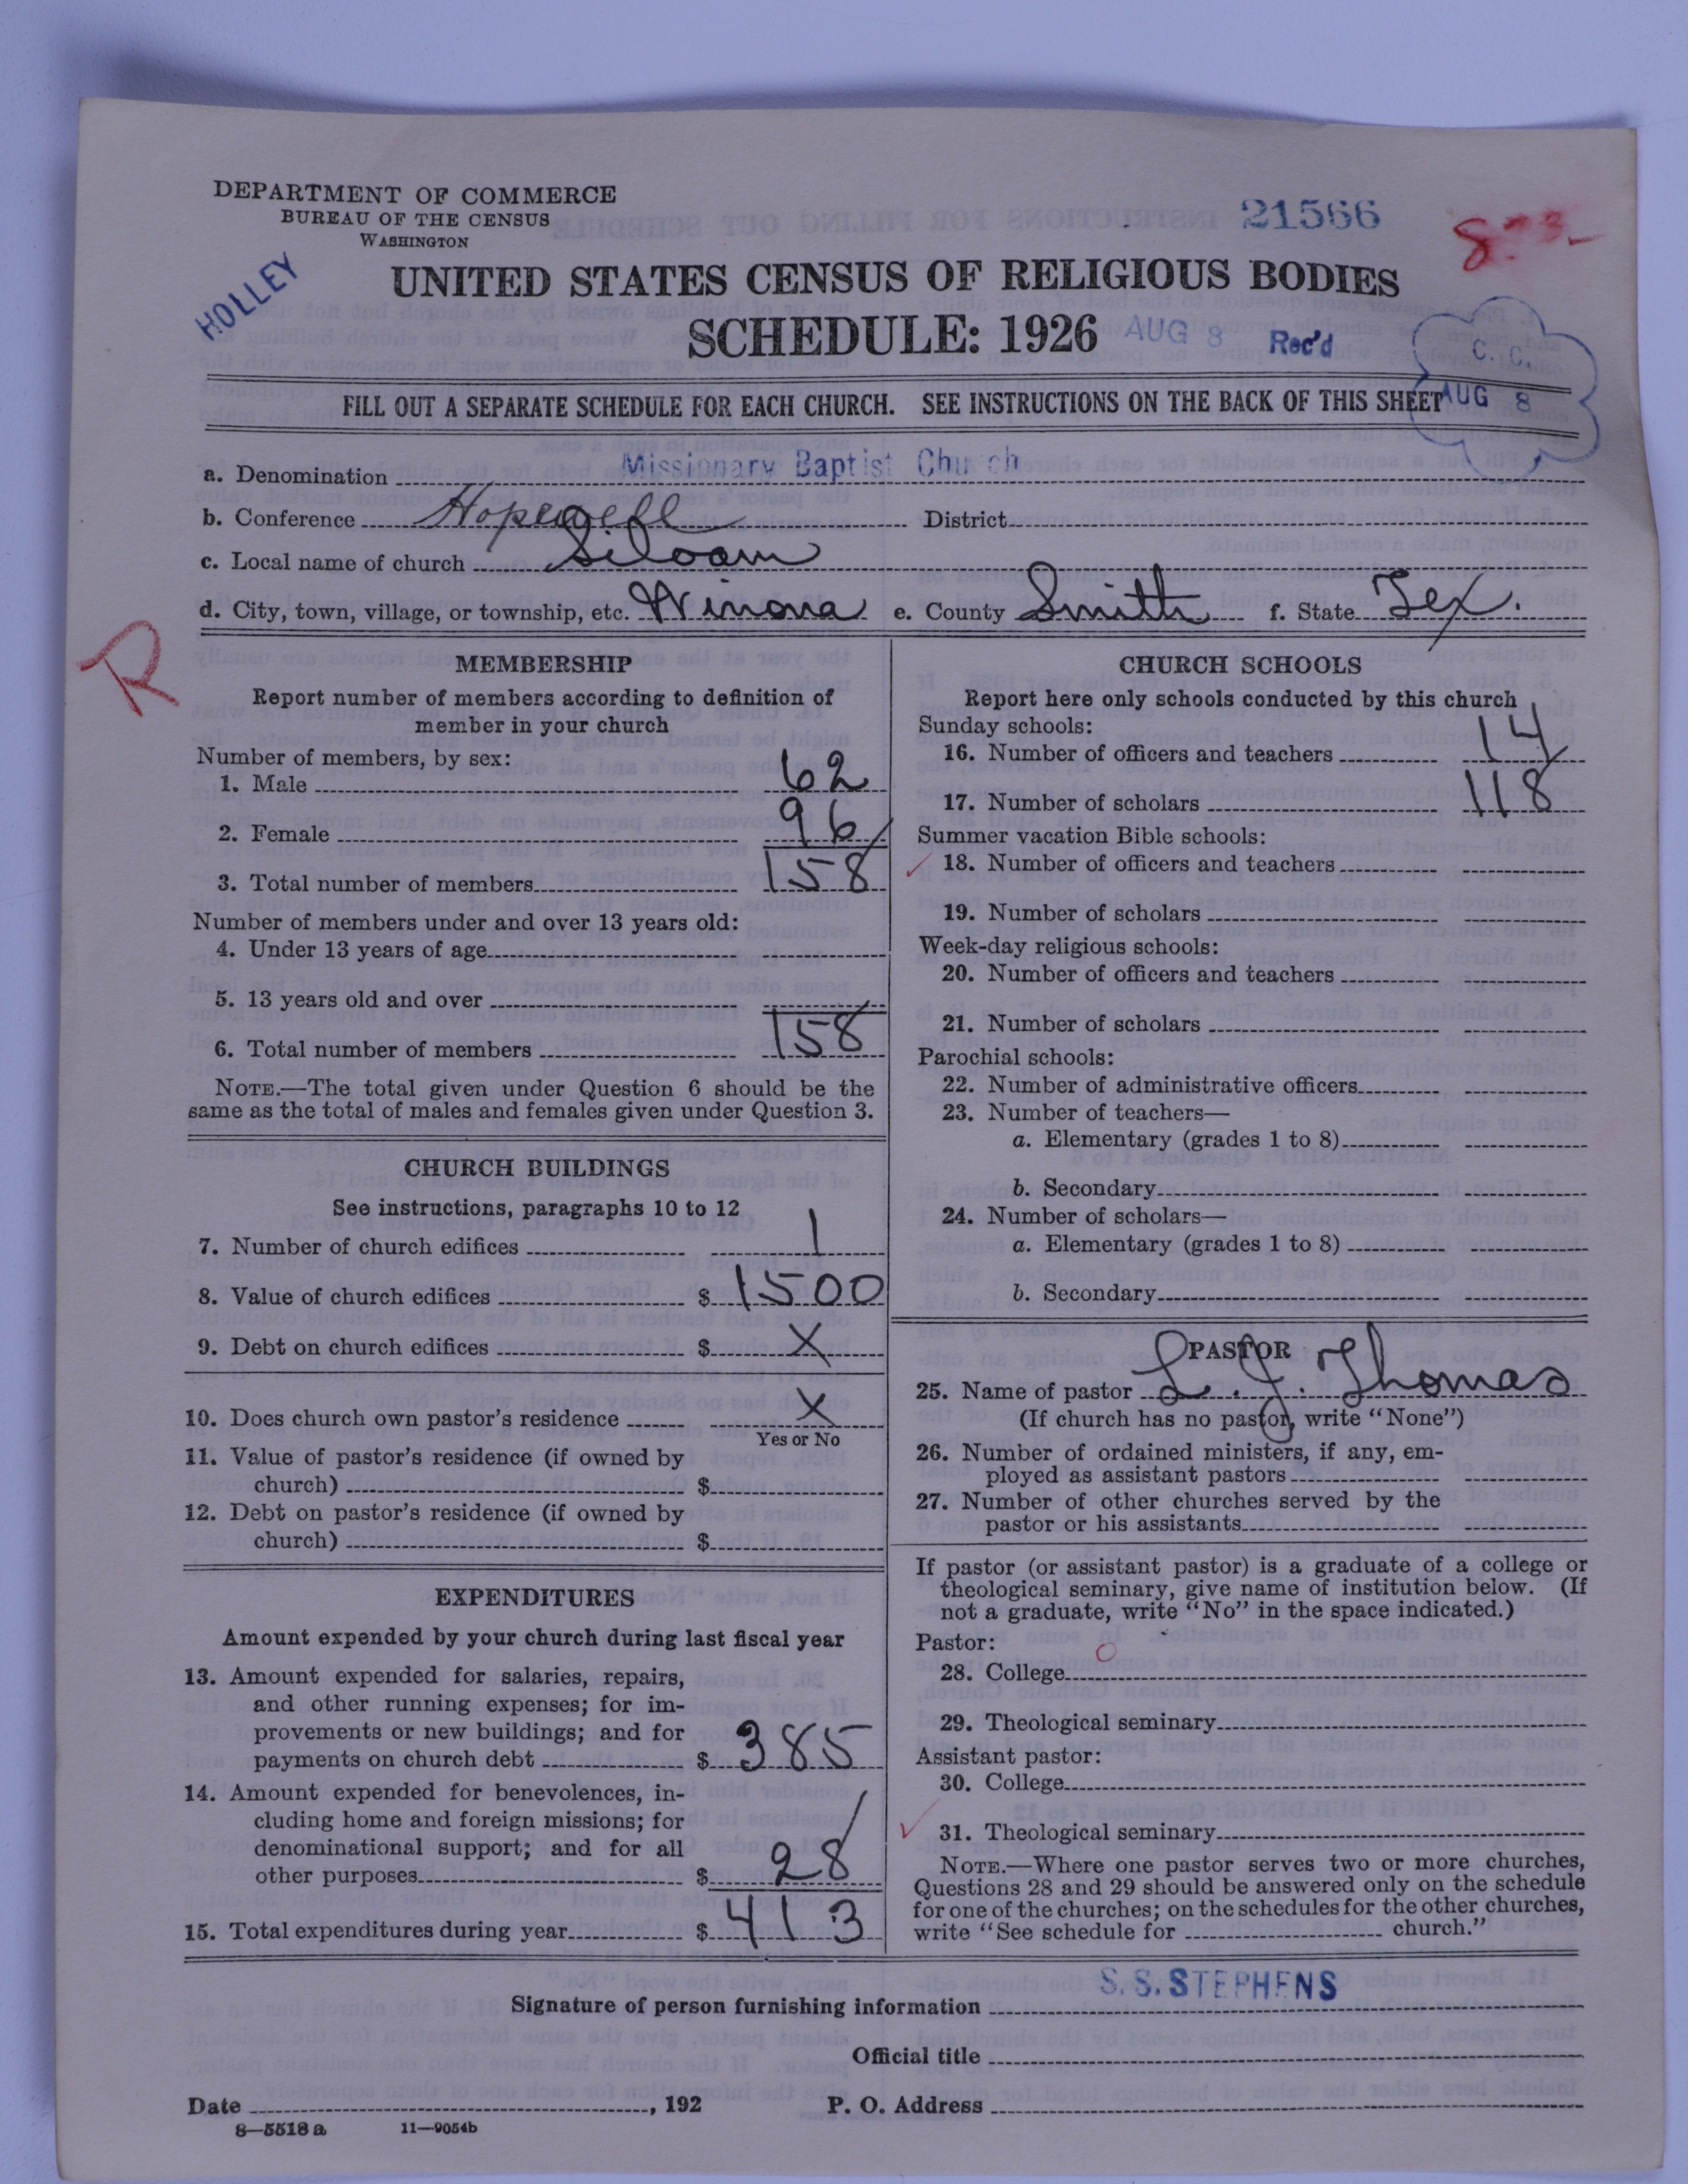 DEPARTMENT OF COMMERCE
BUREAU OF THE CENSUS
WASHINGTON
21566
HOLLEY
UNITED STATES CENSUS OF RELIGIOUS BODIES
SCHEDULE: 1926 AUG 8 Rec'd
C. C.
AUG 8
FILL OUT A SEPARATE SCHEDULE FOR EACH CHURCH. SEE INSTRUCTIONS ON THE BACK OF THIS SHEET
a. Denomination Missionary Baptist Church
b. Conference Hopewell District
c. Local name of church Siloam
d. City, town, village, or township, etc. Winona e. County Smith f. State Tex.
R
MEMBERSHIP
Report number of members according to definition of
member in your church
Number of members, by sex:
1. Male 62
2. Female 96
3. Total number of members 158
Number of members under and over 13 years old:
4. Under 13 years of age
5. 13 years old and over
6. Total number of members 158
NOTE.—The total given under Question 6 should be the
same as the total of males and females given under Question 3.
CHURCH BUILDINGS
See instructions, paragraphs 10 to 12
7. Number of church edifices 1
8. Value of church edifices $ 1500
9. Debt on church edifices $ X
10. Does church own pastor's residence X
Yes or No
11. Value of pastor's residence (if owned by
church) $
12. Debt on pastor's residence (if owned by
church) $
EXPENDITURES
Amount expended by your church during last fiscal year
13. Amount expended for salaries, repairs,
and other running expenses; for im-
provements or new buildings; and for
payments on church debt $ 385
14. Amount expended for benevolences, in-
cluding home and foreign missions; for
denominational support; and for all
other purposes $ 28
15. Total expenditures during year $ 413
CHURCH SCHOOLS
Report here only schools conducted by this church
Sunday schools:
16. Number of officers and teachers 14
17. Number of scholars 118
Summer vacation Bible schools:
18. Number of officers and teachers
19. Number of scholars
Week-day religious schools:
20. Number of officers and teachers
21. Number of scholars
Parochial schools:
22. Number of administrative officers
23. Number of teachers—
a. Elementary (grades 1 to 8)
b. Secondary
24. Number of scholars—
a. Elementary (grades 1 to 8)
b. Secondary
PASTOR
25. Name of pastor L. J. Thomas
(If church has no pastor, write "None")
26. Number of ordained ministers, if any, em-
ployed as assistant pastors
27. Number of other churches served by the
pastor or his assistants
If pastor (or assistant pastor) is a graduate of a college or
theological seminary, give name of institution below. (If
not a graduate, write "No" in the space indicated.)
Pastor:
28. College
29. Theological seminary
Assistant pastor:
30. College
31. Theological seminary
NOTE.—Where one pastor serves two or more churches,
Questions 28 and 29 should be answered only on the schedule
for one of the churches; on the schedules for the other churches,
write "See schedule for church."
S. S. STEPHENS
Signature of person furnishing information
Official title
Date , 192 P. O. Address
8—5518 a 11—9054b